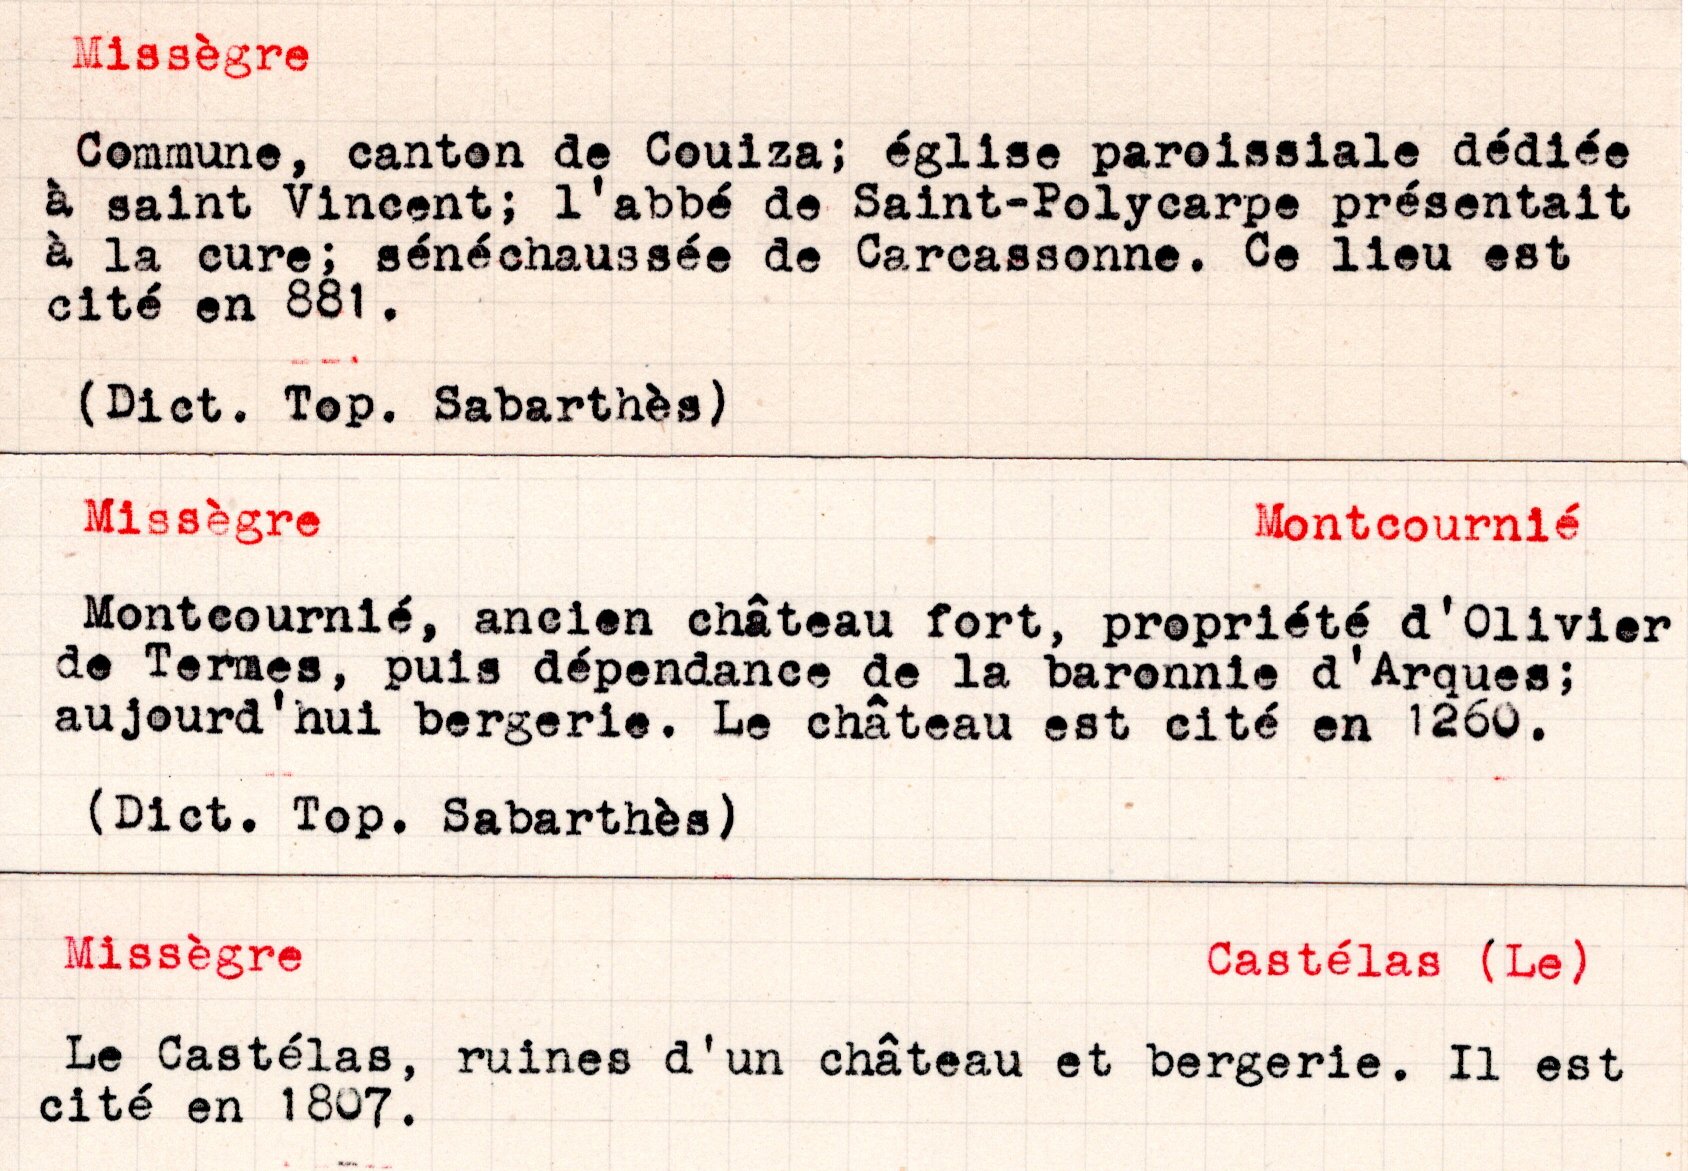 Missègre
Commune, canton de Couiza; église paroissiale dédiée
à saint Vincent; l'abbé de Saint-Polycarpe présentait
à la cure; sénéchaussée de Carcassonne. Ce lieu est
cité en 881.
(Dict. Top. Sabarthès)
Missègre Montcournié
Montcournié, ancien château fort, propriété d'Olivier
de Termes, puis dépendance de la baronnie d'Arques;
aujourd'hui bergerie. Le château est cité en 1260.
(Dict. Top. Sabarthès)
Missègre Castélas (Le)
Le Castélas, ruines d'un château et bergerie. Il est
cité en 1807.